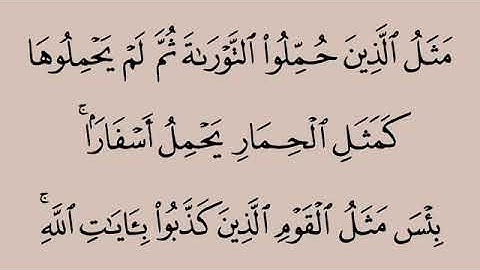 مَثَلُ ٱلَّذِينَ حُمِّلُوا۟ ٱلتَّوْرَىٰةَ ثُمَّ لَمْ يَحْمِلُوهَا
كَمَثَلِ ٱلْحِمَارِ يَحْمِلُ أَسْفَارًۢا ۚ
بِئْسَ مَثَلُ ٱلْقَوْمِ ٱلَّذِينَ كَذَّبُوا۟ بِـَٔايَـٰتِ ٱللَّهِ ۚ